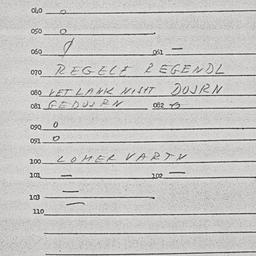 040 0
050 0
060 0 061 —
070 REGELE REGENDL
080 VET LANK NISHT DUJRN
081 GEDUJRN 082
090 0
091 0
100 LOMER VARTN
101 — 102 —
—
103 —
110